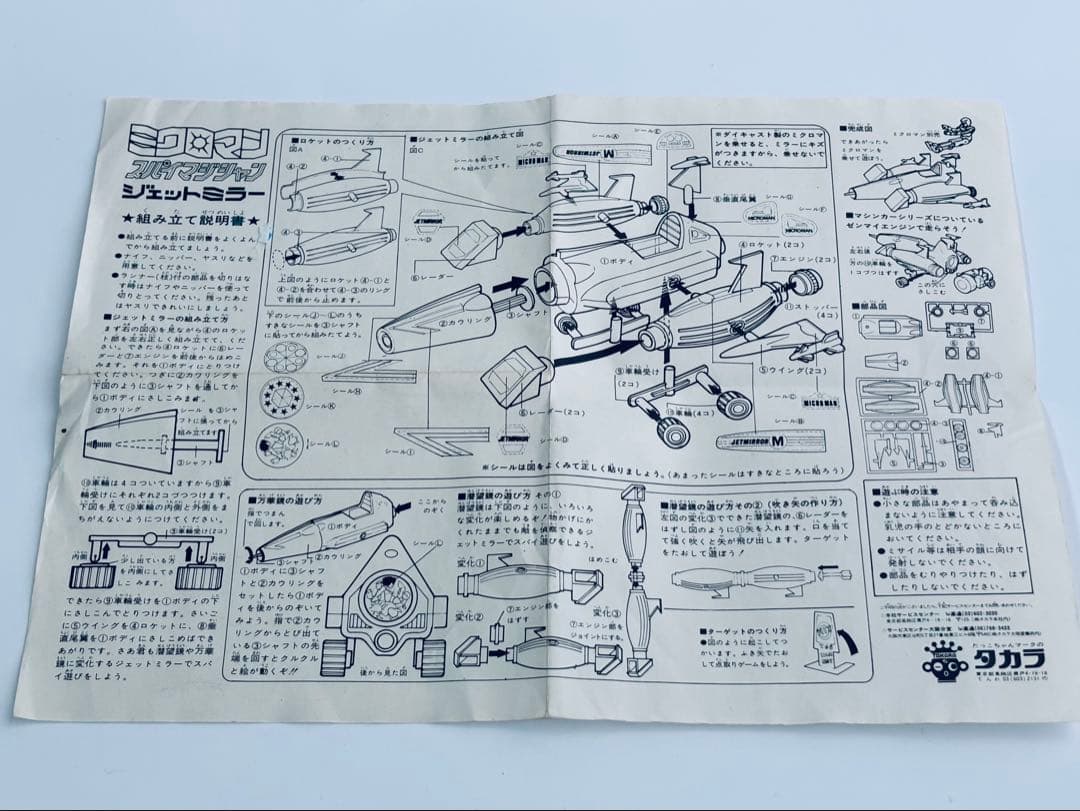 ミクロマン
スパイマジシャン
ジェットミラー
★組み立て説明書★
●組み立てる前に説明書をよくよん
でから組み立てましょう。
●ナイフ、ニッパー、ヤスリなどを
用意してください。
●ランナー(枝)付の部品を切りはな
す時はナイフやニッパーを使って
切りとってください。残ったあと
はヤスリできれいにしましょう。
■ジェットミラーの組み立て方
まず右の図Aを見ながら④のロケッ
ト部を左右正しく組み立てて、くだ
さい。できたら④ロケットに⑥レー
ダーと⑦エンジンを前後からはめこ
みます。それを①ボディにとりつけ
てください。つぎに②カウリングを
下図のように③シャフトを通してか
ら①ボディにさしこみます。
②カウリング
シールを③シャ
フトに貼ってから
組み立てます
③シャフト
⑩車輪は4コついていますから⑨車
輪受けにそれぞれ2コづつつけます。
下図を見て⑩車輪の内側と外側をま
ちがえないようにつけてください。
⑨車輪受け(2コ)
内側
少し出ている方
を内側にしてさ
しこみます。
内側
できたら⑨車輪受けを①ボディの下
にさしこんでとりつけます。さいご
に⑤ウイングを④ロケットに、⑧垂
直尾翼を①ボディにさしこめばでき
あがりです。さあ君も潜望鏡や万華
鏡に変化するジェットミラーでスパ
イ遊びをしよう。
■ロケットのつくり方
図A
④-①
④-②
④-③
上図のようにロケット④-①と
④-②を合わせて④-③のリング
で前後から止めます。
■ジェットミラーの組み立て図
図C
シールを貼って
から組みたてます。
シールC
MICROMAN
シールA
JETMIRROR
シールE
※ダイキャスト製のミクロマ
ンを乗せると、ミラーにキズ
がつきますから、乗せないで
ください。
JETMIRROR
シールD
⑥レーダー
⑧垂直尾翼
シールG
シールF
MICROMAN
MICROMAN
①ボディ
④ロケット(2コ)
⑦エンジン(2コ)
⑪ストッパー
(4コ)
②カウリング
③シャフト
下のシールJ〜Lのうち
すきなシールを③シャフト
に貼ってから組みたてよう。
シールJ
シールK
シールL
シールH
シールI
⑥レーダー(2コ)
JETMIRROR
シールD
⑨車輪受け
(2コ)
⑩車輪(4コ)
⑤ウイング(2コ)
シールC
MICROMAN
シールB
JETMIRROR M
※シールは図をよくみて正しく貼りましょう。(あまったシールはすきなところに貼ろう)
■完成図
ミクロマン別売
できあがったら
ミクロマンを
乗せて遊ぼう。
■マシンカーシリーズについている
ゼンマイエンジンで走らそう!
左右後
方の⑩車輪を
1コづつはずす
この穴に
さしこむ
■部品図
■万華鏡の遊び方
指でつまん
で回します。
①ボディ
②カウリング
③シャフト
ここから
のぞく
シールL
①ボディに③シャフ
トと②カウリングを
セットしたら①ボデ
ィを後からのぞいて
みよう。指で②カウ
リングからとび出て
いる③シャフトの先
端を回すとクルクル
と絵が動くぞ!!
後から見た図
■潜望鏡の遊び方 その①
潜望鏡は下図のように、いろいろ
な変化が楽しめるぞ!物かげにか
くれたままでも敵を偵察できるジ
ェットミラーでスパイ遊びをしよう。
変化①
はめこむ
変化②
⑦エンジン部を
はずす
変化③
⑦エンジン部を
ジョイントにする。
■潜望鏡の遊び方その②(吹き矢の作り方)
左図の変化③でできた潜望鏡の、⑥レーダーを
はずし図のように⑪矢を入れます。口を当て
て強く吹くと矢が飛び出します。ターゲット
をたおして遊ぼう!
■ターゲットのつくり方
●図のように起こしてつ
かいます。ふき矢でたお
して点取りゲームをしよう。
■遊ぶ時の注意
●小さな部品はあやまって呑み込
まないように注意してください。
乳児の手のとどかないところに
おいてください。
●ミサイル等は相手の顔に向けて
発射しないでください。
●部品をむりやりつけたり、はず
したりしないでください。
だっこちゃんマークの
タカラ
TAKARA
東京都葛飾区青戸4-19-16
でんわ 03(603)2131代